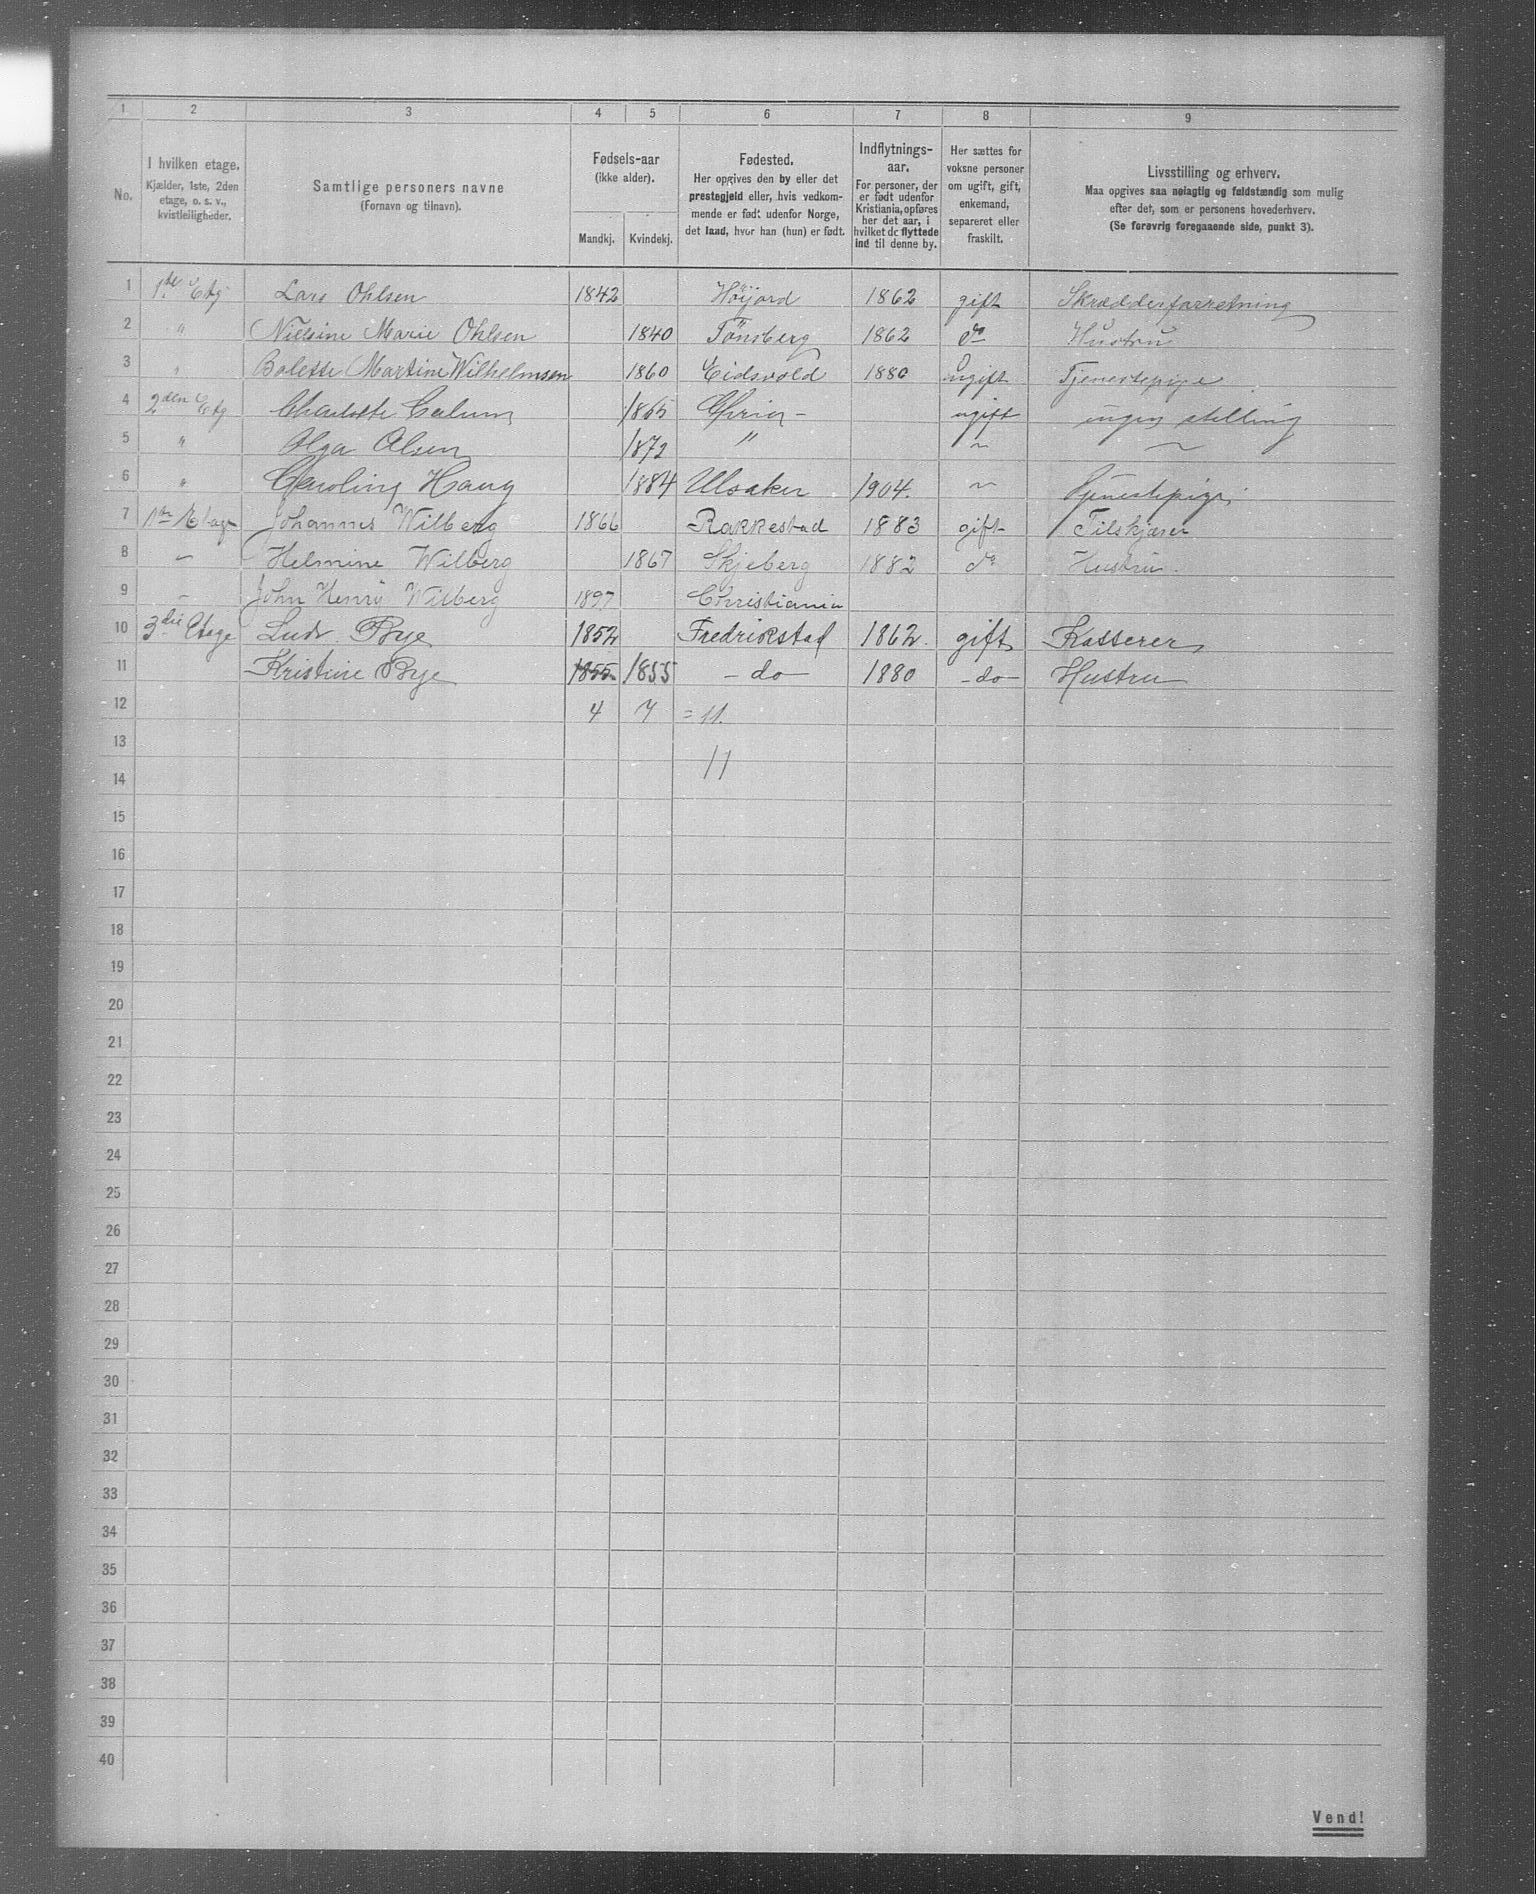 1 2 3 4 5 6 7 8 9
No.
I hvilken etage.
Kjælder, 1ste, 2den
etage, o. s. v.,
kvistleiligheder.
Samtlige personers navne
(Fornavn og tilnavn).
Fødsels-aar
(ikke alder).
Mandkj. Kvindekj.
Fødested.
Her opgives den by eller det
prestegjeld eller, hvis vedkom-
mende er født udenfor Norge,
det land, hvor han (hun) er født.
Indflytnings-
aar.
For personer, der
er født udenfor
Kristiania, opføres
her det aar, i
hvilket de flyttede
ind til denne by.
Her sættes for
voksne personer
om ugift, gift,
enkemand,
separeret eller
fraskilt.
Livsstilling og erhverv.
Maa opgives saa nøiagtig og fuldstændig som mulig
efter det, som er personens hovederhverv.
(Se forøvrig foregaaende side, punkt 3).
1 1ste Etg Lars Ohlsen 1842 Höijord 1862 gift Skrædderforretning
2 " Nielsine Marie Ohlsen 1840 Tönsberg 1862 do Hustru
3 " Bolette Martine Wilhelmsen 1860 Eidsvold 1880 ugift Tjenestepige
4 2den Etg Charlotte 1865 ugift ingen stilling
5 " Olga Olsen 1872 " ~ ~
6 " Caroline Haug 1884 Ulsaker 1904. ~ Tjenestepige
7 1ste Etage Johannes Wilberg 1866 Rakkestad 1883 gift Tilskjærer
8 - Helmine Wilberg 1867 Skjeberg 1882 do Hustru.
9 - John Henry Wilberg 1897 Christiania
10 3die Etage Ludv. Bye 1852 Fredrikstad 1862. gift Kasserer
11 Kristine Bye 1855 1855 - do - 1880 - do - Hustru
12 4 7 = 11.
13
11
14
15
16
17
18
19
20
21
22
23
24
25
26
27
28
29
30
31
32
33
34
35
36
37
38
39
40
Vend!